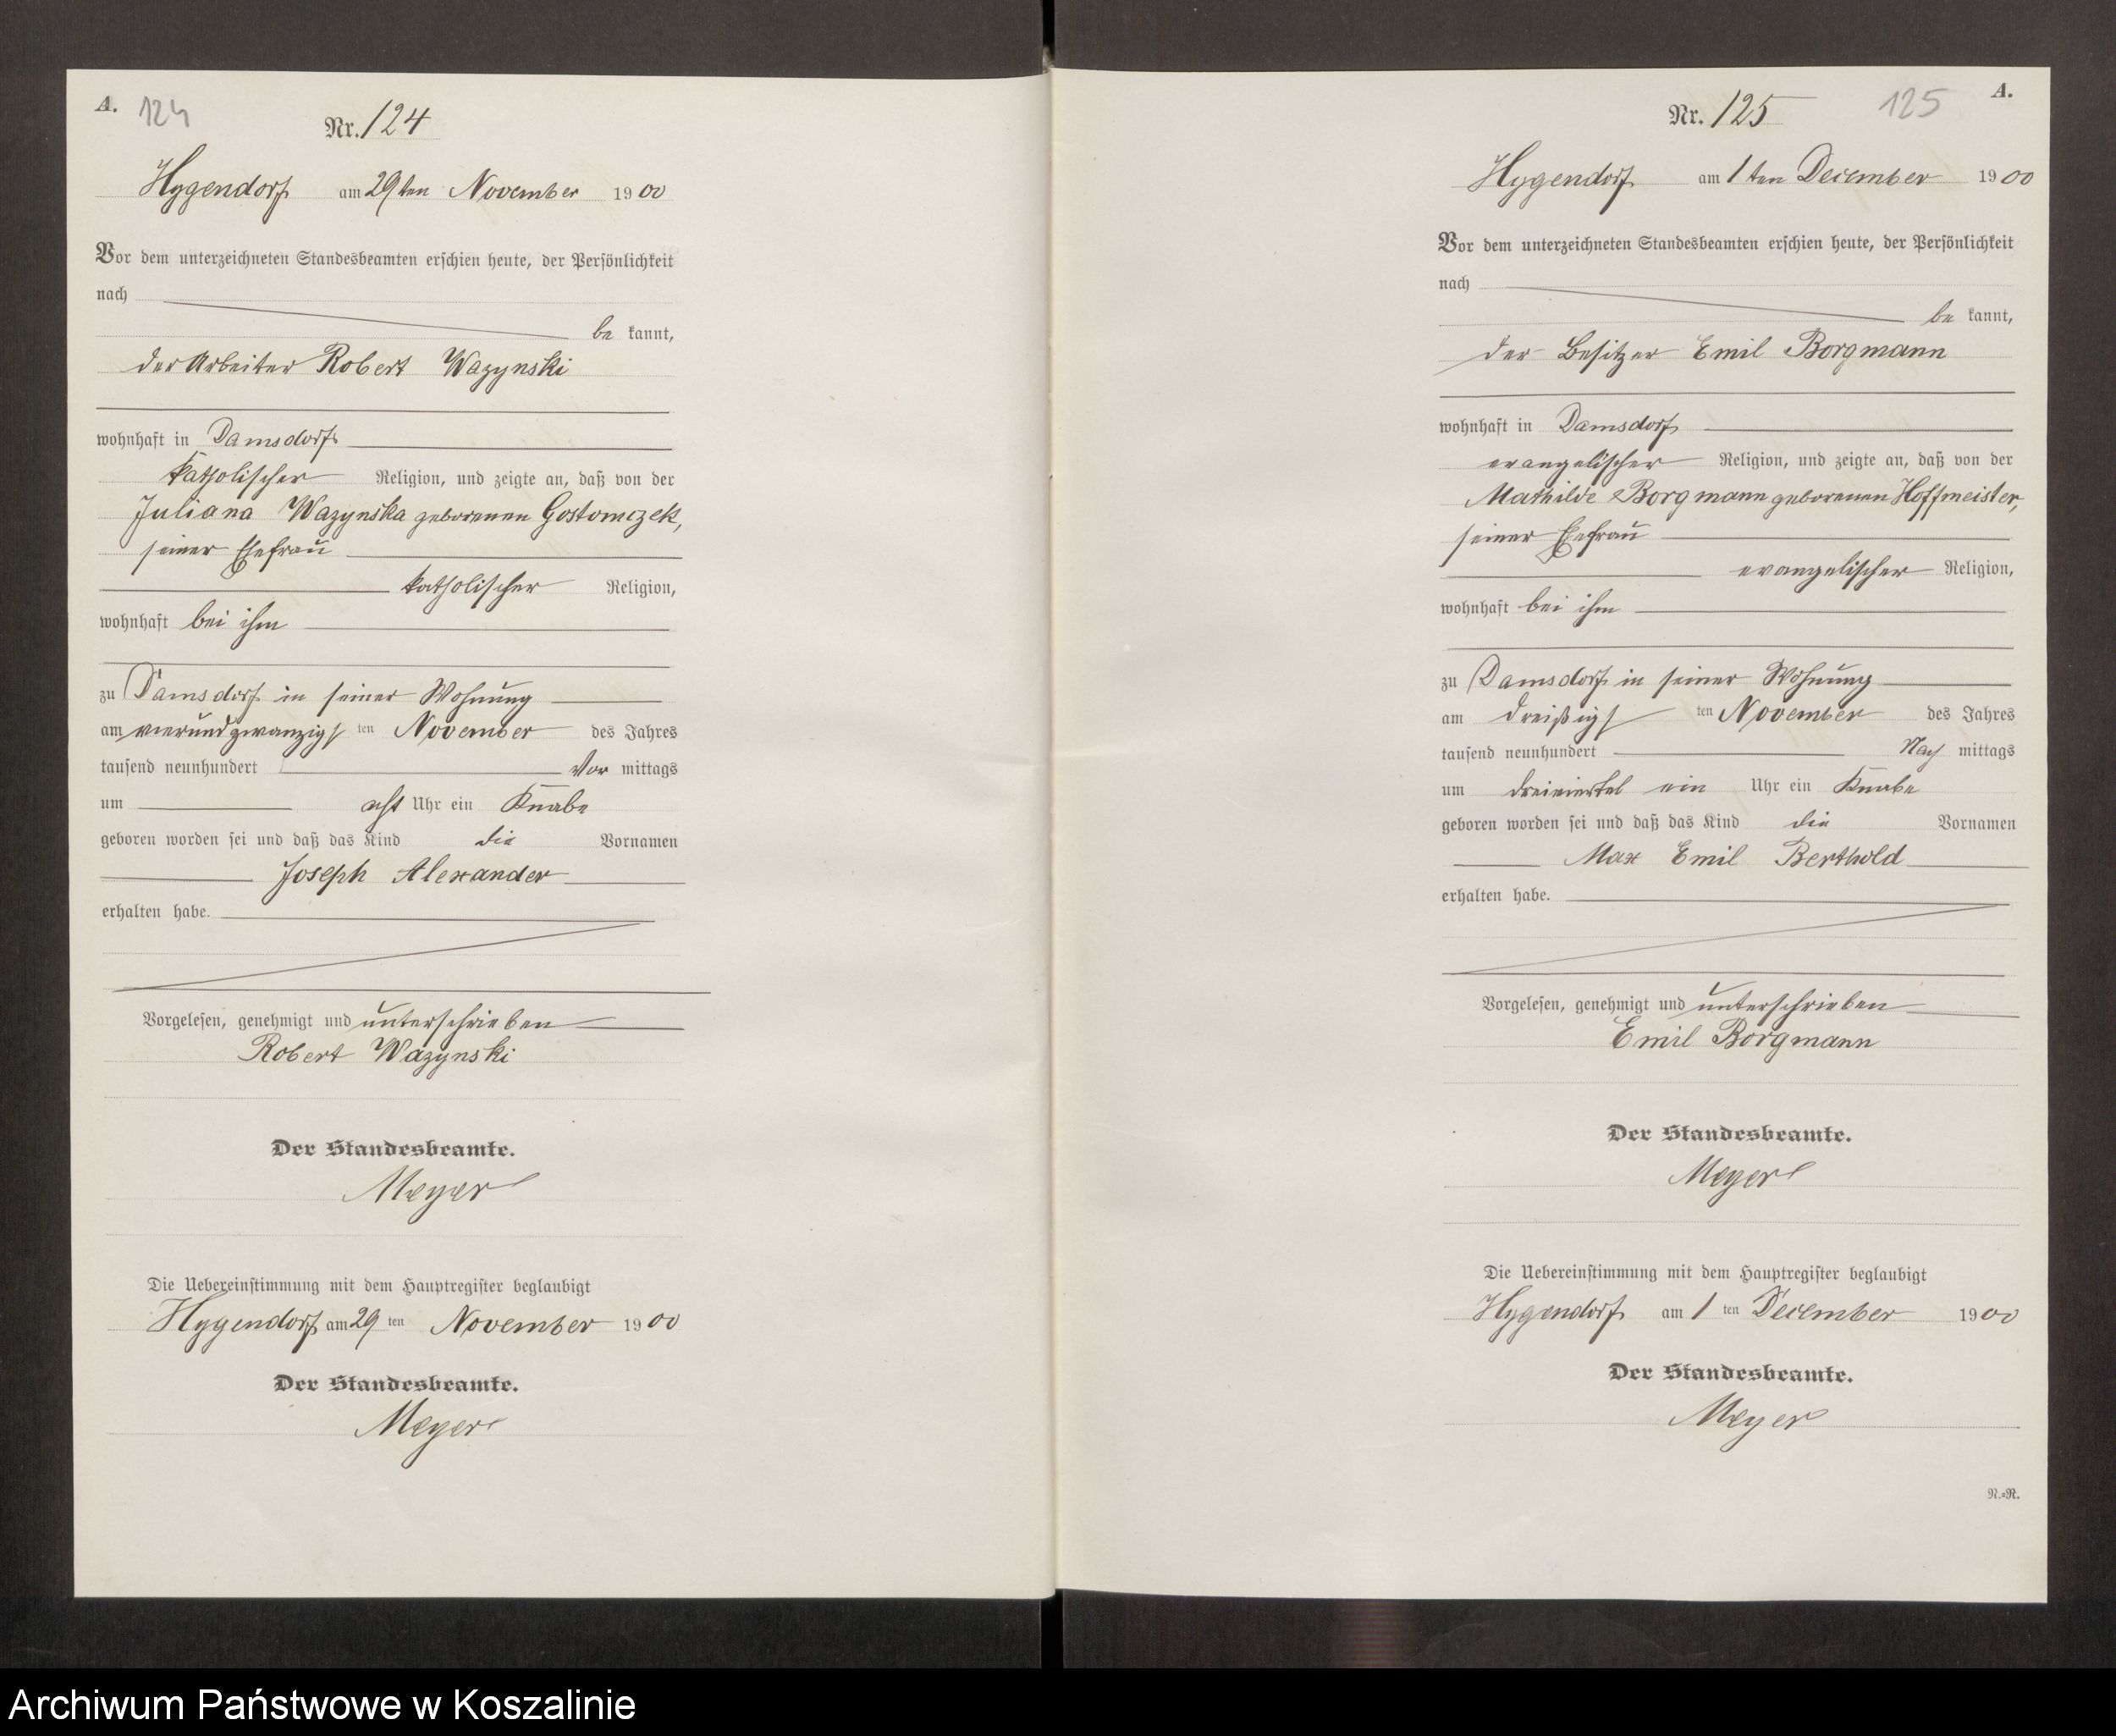 A. 124
Nr. 124
Hygendorf am 29ten November 1900
Vor dem unterzeichneten Standesbeamten erschien heute, der Persönlichkeit
nach
be kannt,
der Arbeiter Robert Wazynski
wohnhaft in Damsdorf
katholischer Religion, und zeigte an, daß von der
Juliana Wazynska geborenen Gostomczek,
seiner Ehefrau
katholischer Religion,
wohnhaft bei ihm
zu Damsdorf in seiner Wohnung
am vierundzwanzigs ten November des Jahres
tausend neunhundert Vor mittags
um acht Uhr ein Knabe
geboren worden sei und daß das Kind die Vornamen
Joseph Alexander
erhalten habe.
Vorgelesen, genehmigt und unterschrieben
Robert Wazynski
Der Standesbeamte.
Meyer
Die Uebereinstimmung mit dem Hauptregister beglaubigt
Hygendorf am 29 ten November 1900
Der Standesbeamte.
Meyer
125 A.
Nr. 125
Hygendorf am 1ten December 1900
Vor dem unterzeichneten Standesbeamten erschien heute, der Persönlichkeit
nach
be kannt,
der Besitzer Emil Borgmann
wohnhaft in Damsdorf
evangelischer Religion, und zeigte an, daß von der
Mathilde Borgmann geborenen Hoffmeister,
seiner Ehefrau
evangelischer Religion,
wohnhaft bei ihm
zu Damsdorf in seiner Wohnung
am dreißigs ten November des Jahres
tausend neunhundert Nach mittags
um dreiviertel ein Uhr ein Knabe
geboren worden sei und daß das Kind die Vornamen
Max Emil Berthold
erhalten habe.
Vorgelesen, genehmigt und unterschrieben
Emil Borgmann
Der Standesbeamte.
Meyer
Die Uebereinstimmung mit dem Hauptregister beglaubigt
Hygendorf am 1 ten December 1900
Der Standesbeamte.
Meyer
N.=R.
Archiwum Państwowe w Koszalinie